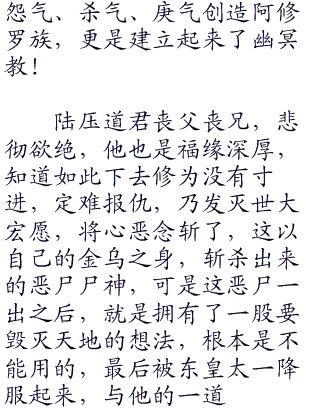 怨气、杀气、庚气创造阿修
罗族，更是建立起来了幽冥
教！
陆压道君丧父丧兄，悲
彻欲绝，他也是福缘深厚，
知道如此下去修为没有寸
进，定难报仇，乃发灭世大
宏愿，将心恶念斩了，这以
自己的金乌之身，斩杀出来
的恶尸尸神，可是这恶尸一
出之后，就是拥有了一股要
毁灭天地的想法，根本是不
能用的，最后被东皇太一降
服起来，与他的一道